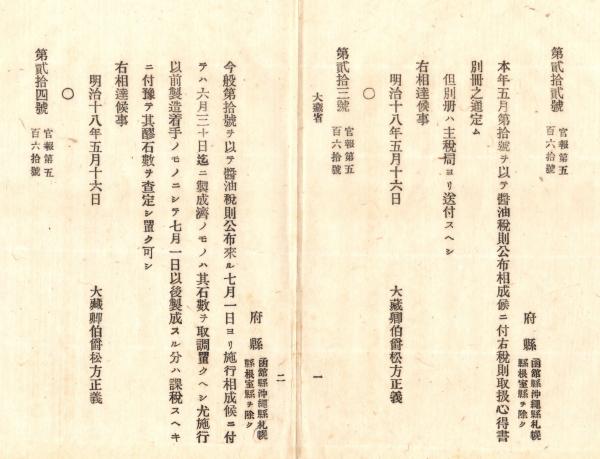 第貳拾貳號 官報第五百六拾號
府縣 函館縣沖繩縣札幌縣根室縣ヲ除ク
本年五月第拾號ヲ以テ醬油稅則公布相成候ニ付右稅則取扱心得書
別冊之通定ム
但別册ハ主稅局ヨリ送付スヘシ
右相達候事
明治十八年五月十六日 大藏卿伯爵松方正義
〇
第貳拾三號 官報第五百六拾號
大藏省 一
府縣 函館縣沖繩縣札幌縣根室縣ヲ除ク
二
今般第拾號ヲ以テ醬油稅則公布來ル七月一日ヨリ施行相成候ニ付
テハ六月三十日迄ニ製成濟ノモノハ其石數ヲ取調置クヘシ尤施行
以前製造着手ノモノニシテ七月一日以後製成スル分ハ課稅スヘキ
ニ付豫テ其醪石數ヲ查定シ置ク可シ
右相達候事
明治十八年五月十六日 大藏卿伯爵松方正義
〇
第貳拾四號 官報第五百六拾號